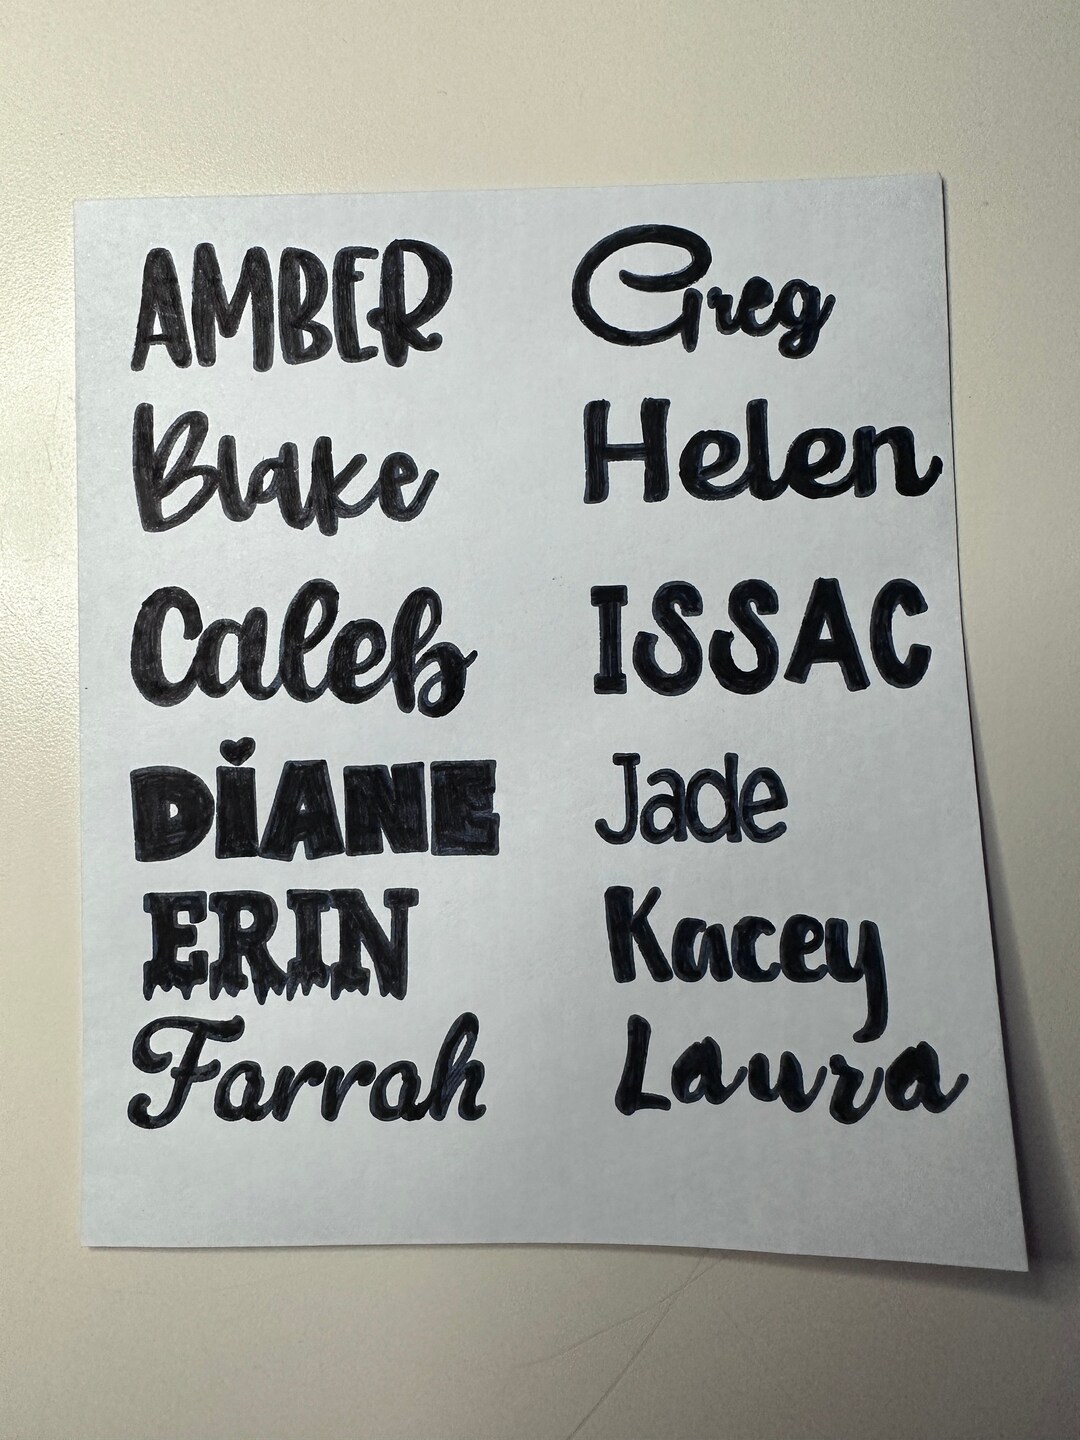 AMBER
Blake
Caleb
DiANE
ERIN
Farrah
Greg
Helen
ISSAC
Jade
Kacey
Laura